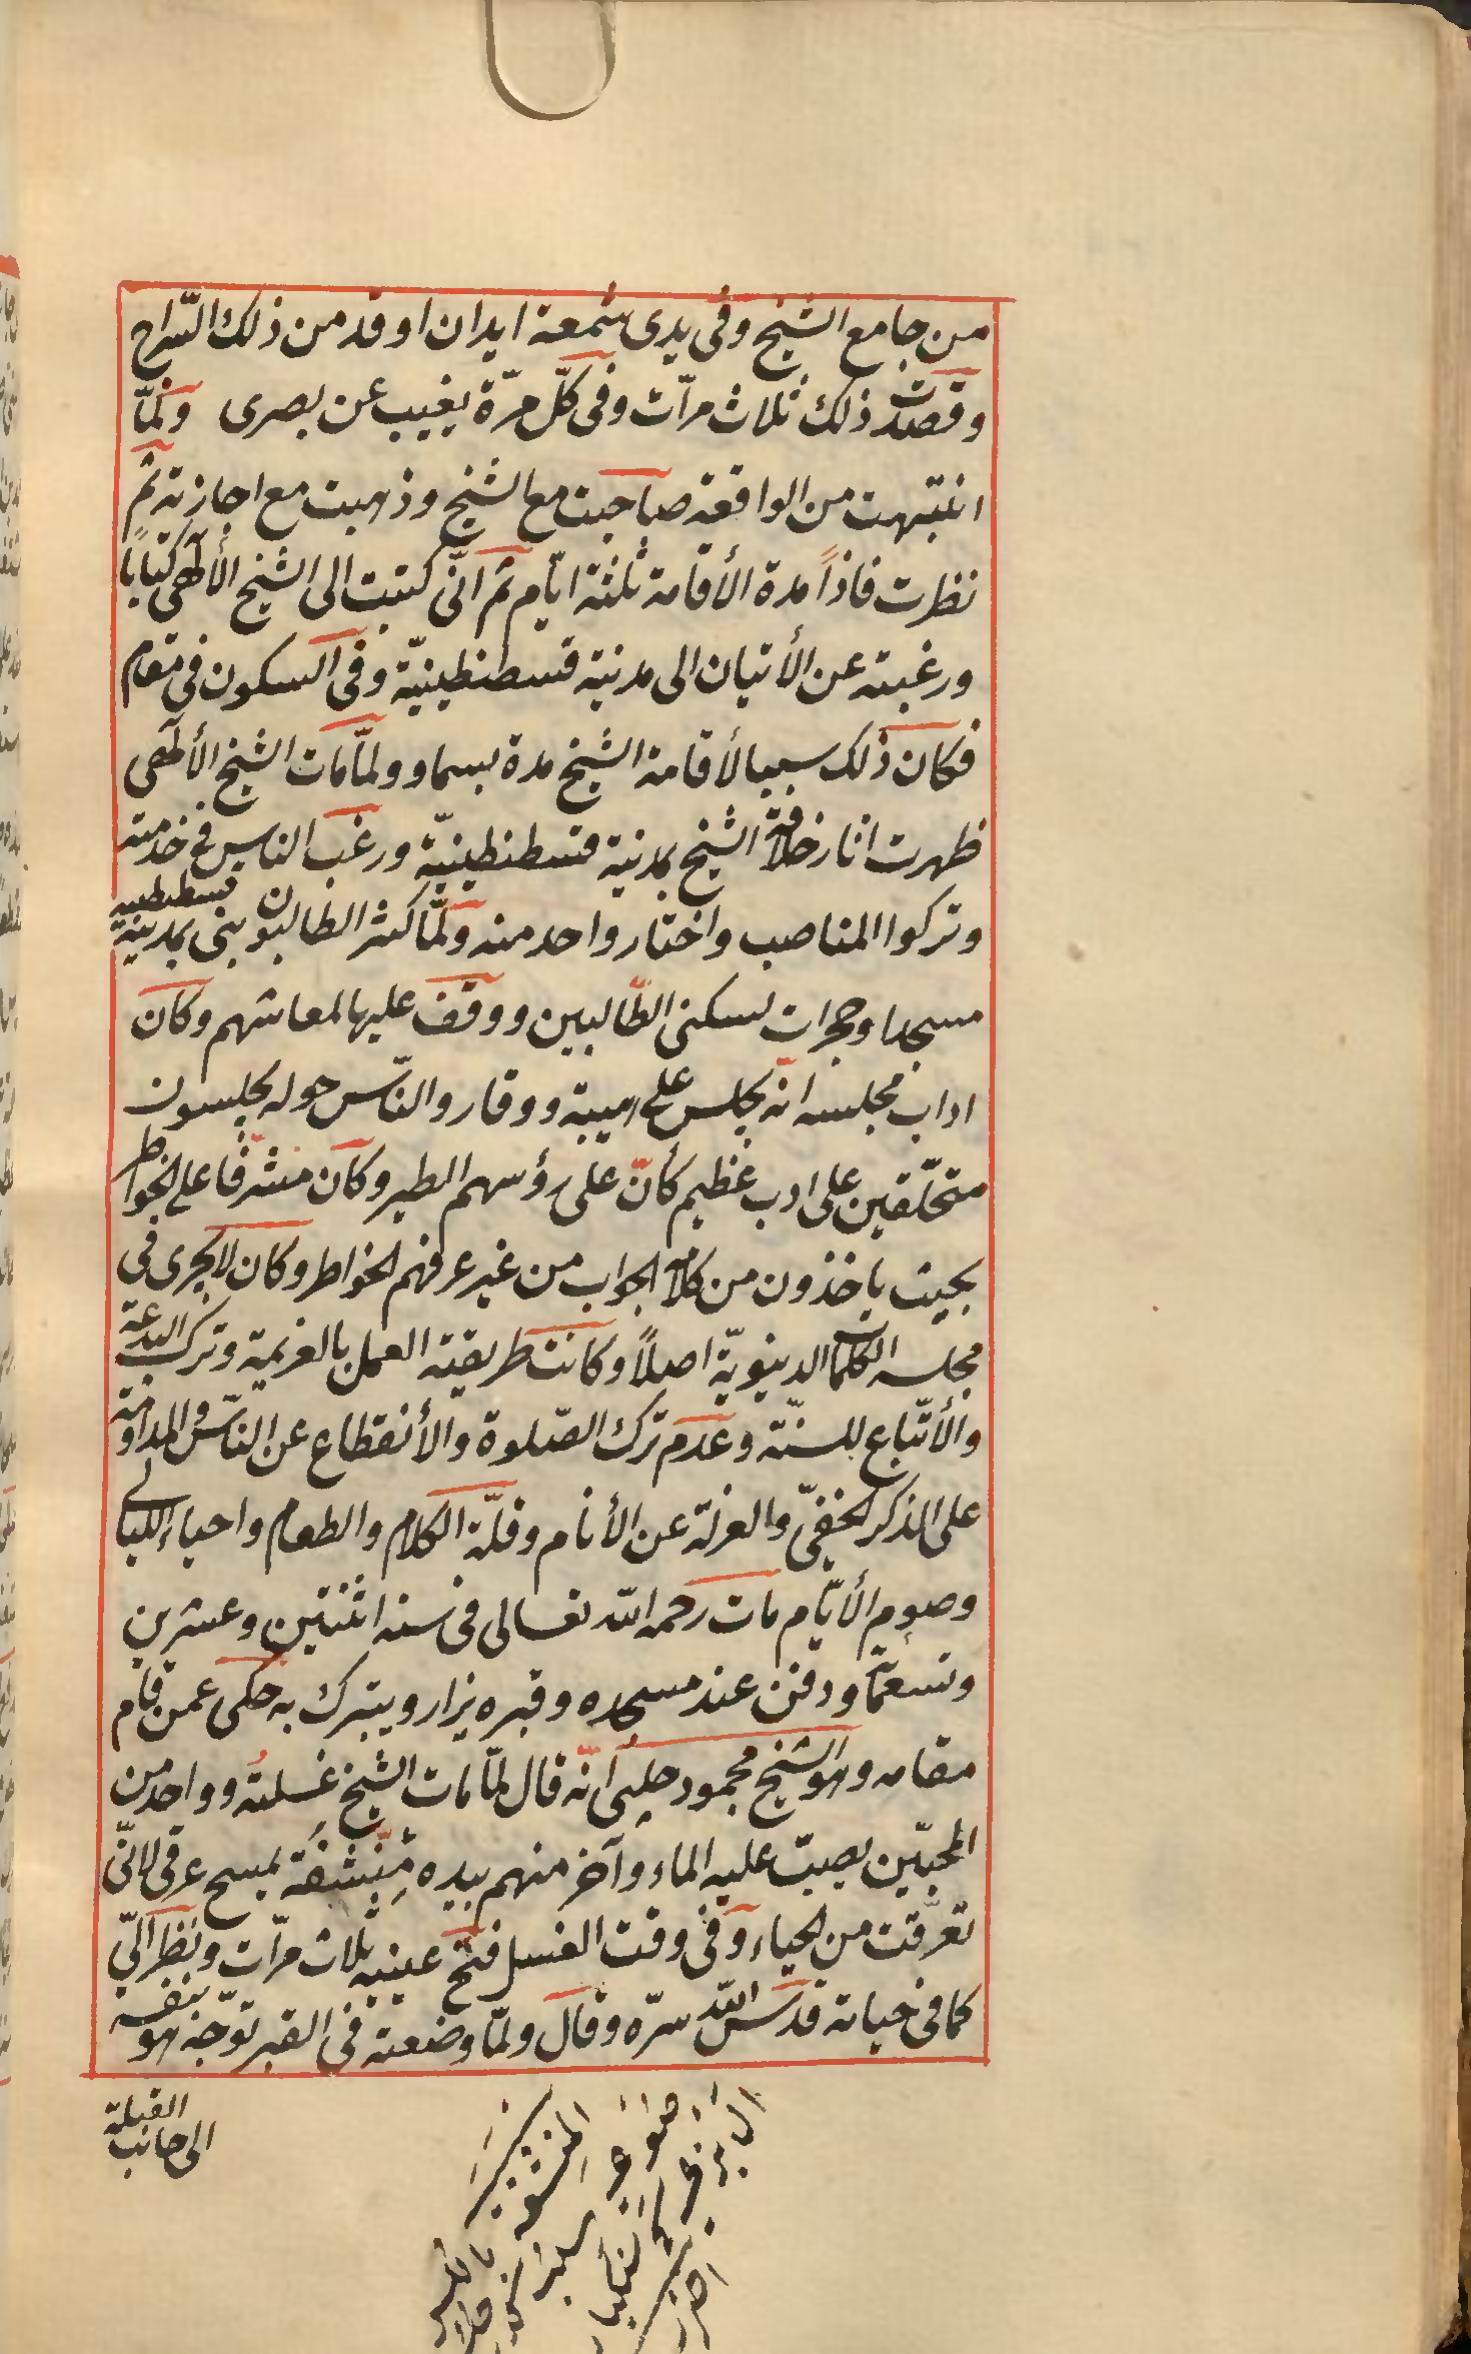 من جامع الشيخ وفى يدى شمعة ايدان اوقد من ذلك السّراج
وقصدت ذلك ثلاث مرّات وفى كلّ مرّة يغيب عن بصرى ولمّا
انتبهت من الواقعة صاحبت مع الشيخ وذهبت مع اجازته ثم
نظرت فاذاً مدة الأقامة ثلثة ايّام ثم انّى كتبت الى الشيخ الألهى كتاباً
ورغبته عن الأتيان الى مدينة قسطنطينيّة وفى السكون فى مقام
فكان ذلك سببا لأقامة الشيخ مدة بسماو ولمّا مات الشيخ الألهى
ظهرت اثار خلافة الشيخ بمدينة قسطنطينيّة ورغب الناس فى خدمته
وتركوا المناصب واختار واحد منه ولمّا كثر الطالبون بنى بمدينة قسطنطينيه
مسجدا وحجرات لسكنى الطّالبين ووقف عليها لمعاشهم وكان
اداب مجلسه انه يجلس على هيبة ووقار والنّاس حوله يجلسون
متحلّقين على ادب عظيم كأنّ على رؤسهم الطير وكان مشرّفا على الخواطر
بحيث ياخذون من كلامه الجواب من غير عرفهم الخواطر وكان لا يجرى فى
مجلسه الكلمات الدنيويّة اصلاً وكانت طريقته العمل بالعزيمة وترك البدعة
والأتّباع للسنّة وعدم ترك الصّلوة والأنقطاع عن النّاس والمداومة
على الذكر الخفىّ والعزلة عن الأنام وقلّة الكلام والطعام واحياء الليالى
وصوم الأيّام مات رحمه الله تعالى فى سنه اثنتين وعشرين
وتسعمّا ودفن عند مسجده وقبره يزار ويتبرك به حكى عمن قام
مقامه وهو الشيخ محمود چلبى انّه قال لمّا مات الشيخ غسلتهُ وواحد من
المحبّين يصبّ عليه الماء وآخر منهم بيده مِنّشفَة يمسح عرقى لانّى
تعرّقت من الحياء وفى وقت الغسل فتح عينيه ثلاث مرّات ونظر الىّ
كما فى حياته قدّس الله سرّه وقال ولمّا وضعته فى القبر توجّه هو بنفسه
الى جانب القبلة